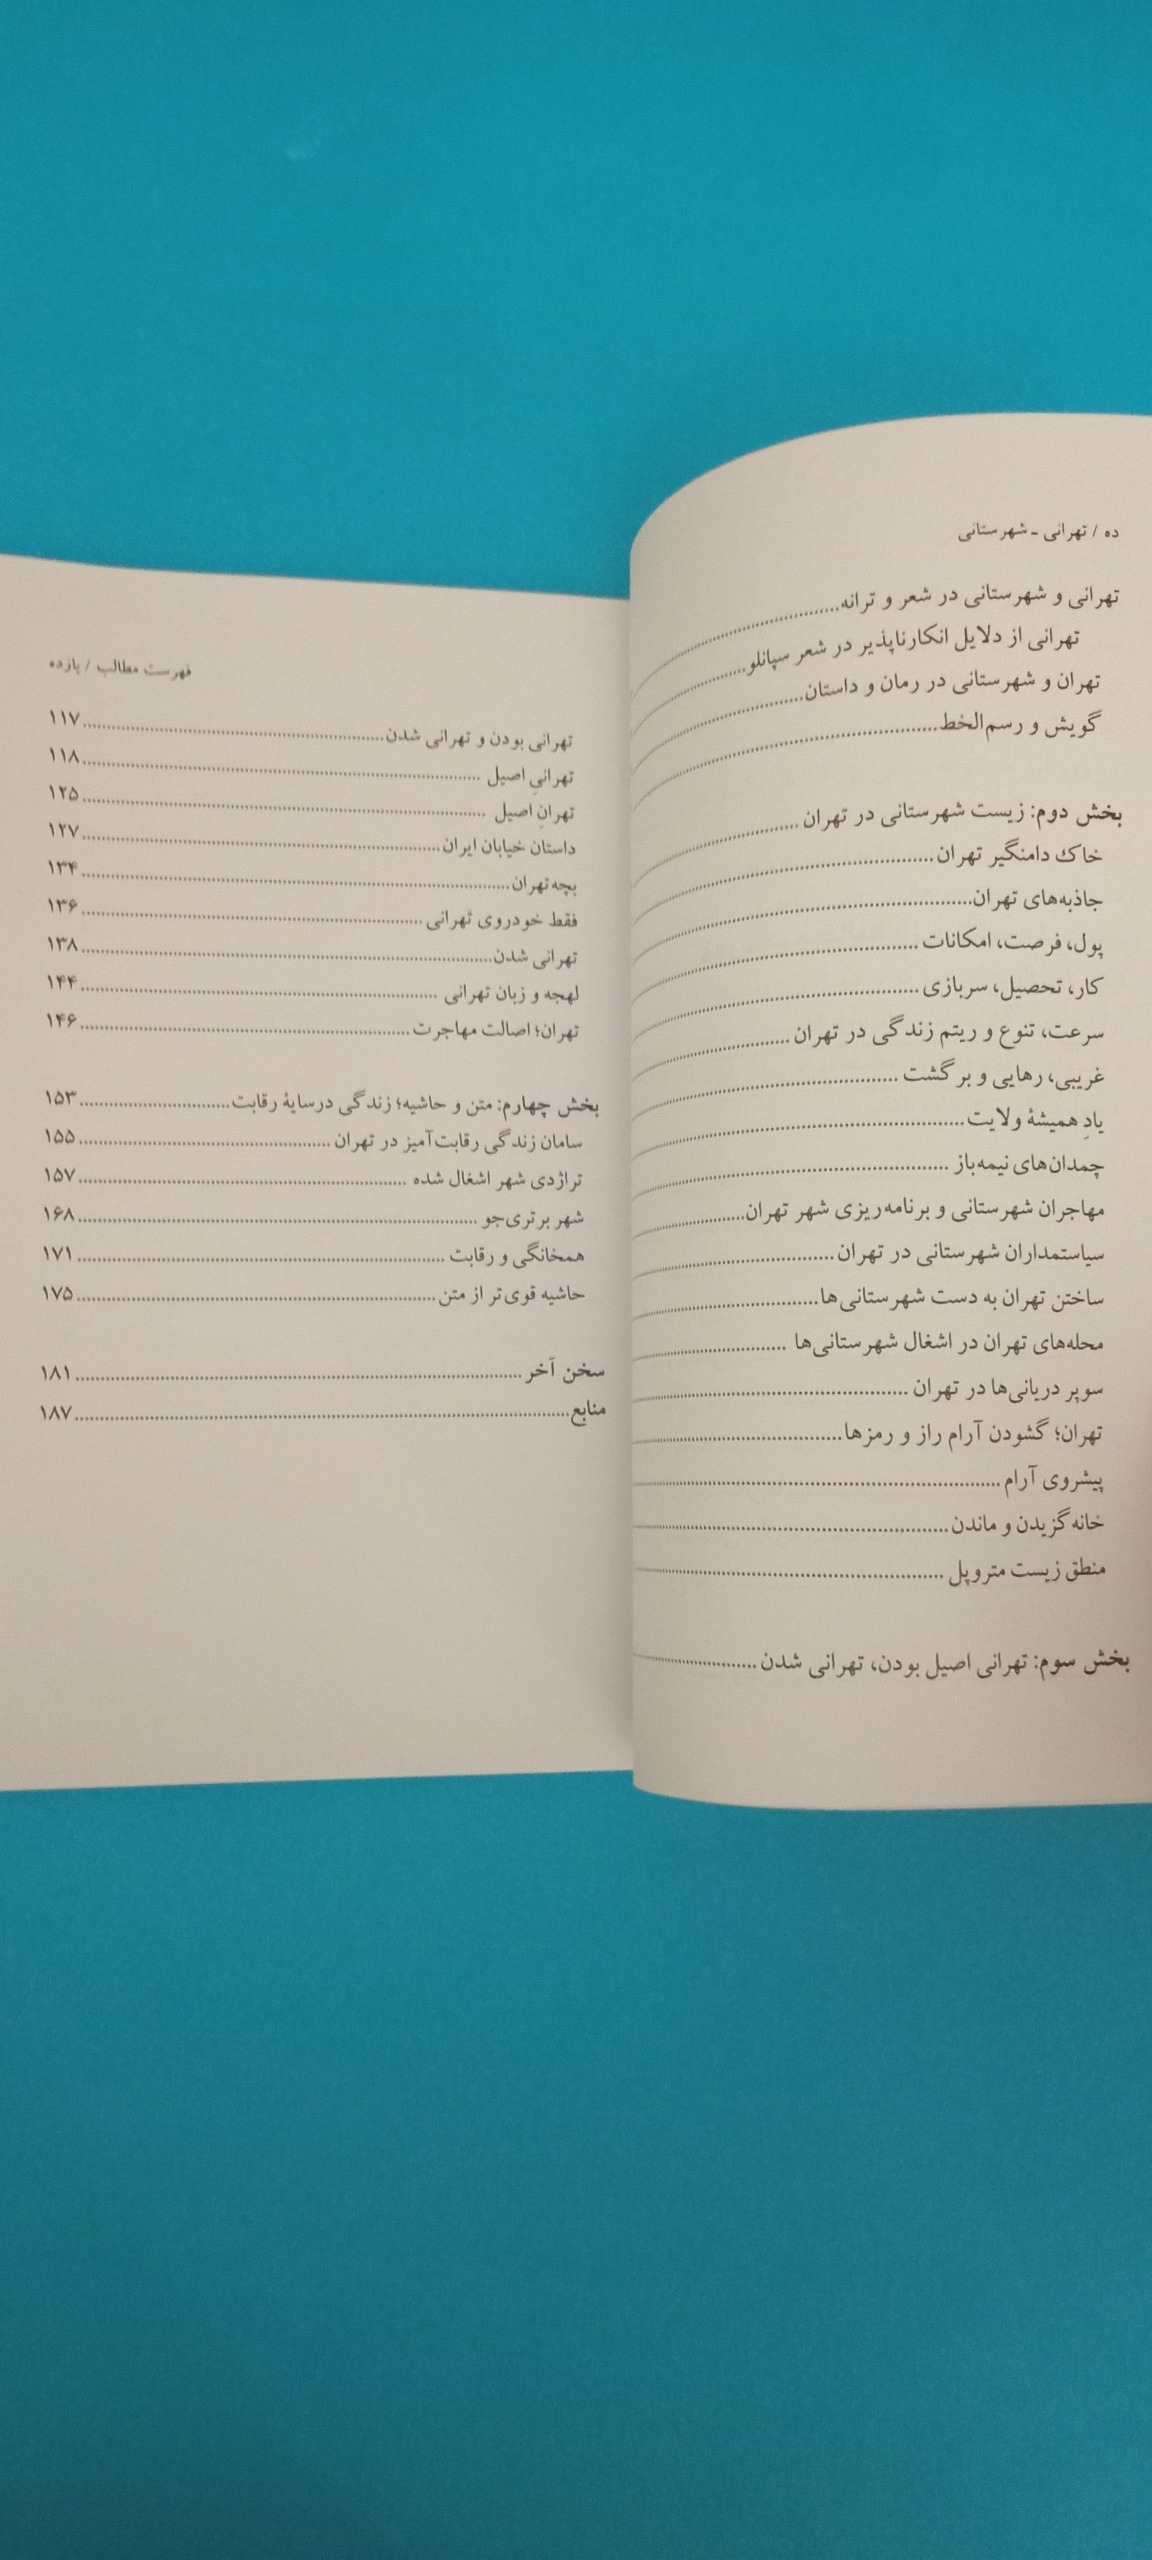 ده / تهرانی ـ شهرستانی
تهرانی و شهرستانی در شعر و ترانه
تهرانی از دلایل انکارناپذیر در شعر سپانلو
تهران و شهرستانی در رمان و داستان
گویش و رسم‌الخط
بخش دوم: زیست شهرستانی در تهران
خاک دامنگیر تهران
جاذبه‌های تهران
پول، فرصت، امکانات
کار، تحصیل، سربازی
سرعت، تنوع و ریتم زندگی در تهران
غریبی، رهایی و برگشت
یادِ همیشهٔ ولایت
چمدان‌های نیمه‌باز
مهاجران شهرستانی و برنامه‌ریزی شهر تهران
سیاستمداران شهرستانی در تهران
ساختن تهران به دست شهرستانی‌ها
محله‌های تهران در اشغال شهرستانی‌ها
سوپر دریانی‌ها در تهران
تهران؛ گشودن آرام راز و رمزها
پیشروی آرام
خانه گزیدن و ماندن
منطق زیست متروپل
بخش سوم: تهرانی اصیل بودن، تهرانی شدن
فهرست مطالب / یازده
تهرانی بودن و تهرانی شدن ۱۱۷
تهرانیِ اصیل ۱۱۸
تهرانِ اصیل ۱۲۵
داستان خیابان ایران ۱۲۷
بچه تهران ۱۳۴
فقط خودروی تهرانی ۱۳۶
تهرانی شدن ۱۳۸
لهجه و زبان تهرانی ۱۴۴
تهران؛ اصالت مهاجرت ۱۴۶
بخش چهارم: متن و حاشیه؛ زندگی درسایهٔ رقابت ۱۵۳
سامان زندگی رقابت‌آمیز در تهران ۱۵۵
تراژدی شهر اشغال شده ۱۵۷
شهر برتری‌جو ۱۶۸
همخانگی و رقابت ۱۷۱
حاشیه قوی‌تر از متن ۱۷۵
سخن آخر ۱۸۱
منابع ۱۸۷